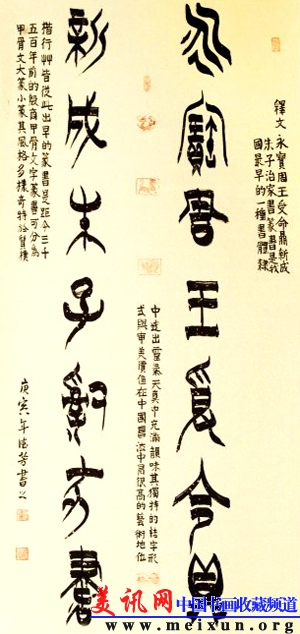 釋文永寶周王受命鼎新成
朱子治家書篆書是我
國最早的一種書體隸
永寶周王受命鼎
新成朱子治家書
楷行艸皆從此出早的篆書是距今三千
五百年前的殷商甲骨文字篆書可分為
甲骨文大篆小篆其風格多樣奇特於質樸
中透出靈氣天真中充滿韻味其獨特的結字形
式與審美價值在中國書法中居很高的藝術地位
庚寅年芳書
美讯网 中国书画收藏频道
www.meixun.org